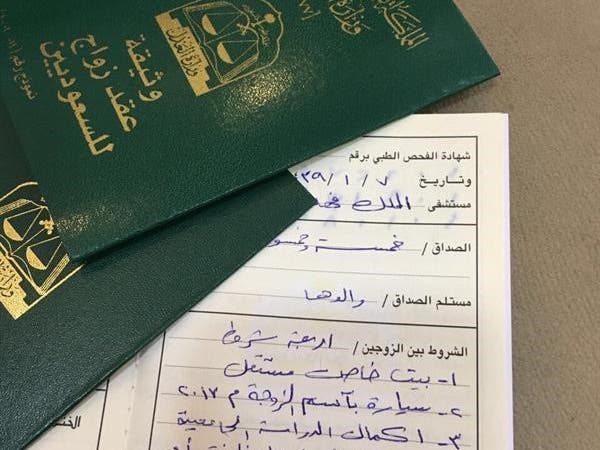 المملكة
وزارة
وزارة العدل
وثيقة
عقد زواج
للسعوديين
نموذج رقم
شهادة الفحص الطبي برقم
وتاريخ ٧ / ١ / ٣٩
مستشفى الملك فهد
الصداق / خمسة وخمسو
مستلم الصداق / والدها
الشروط بين الزوجين / اربعة شروط
١- بيت خاص مستقل
٢- سيارة بآسم الزوجة م ٢٠١٧
٣- اكمال الدراسة الجامعية